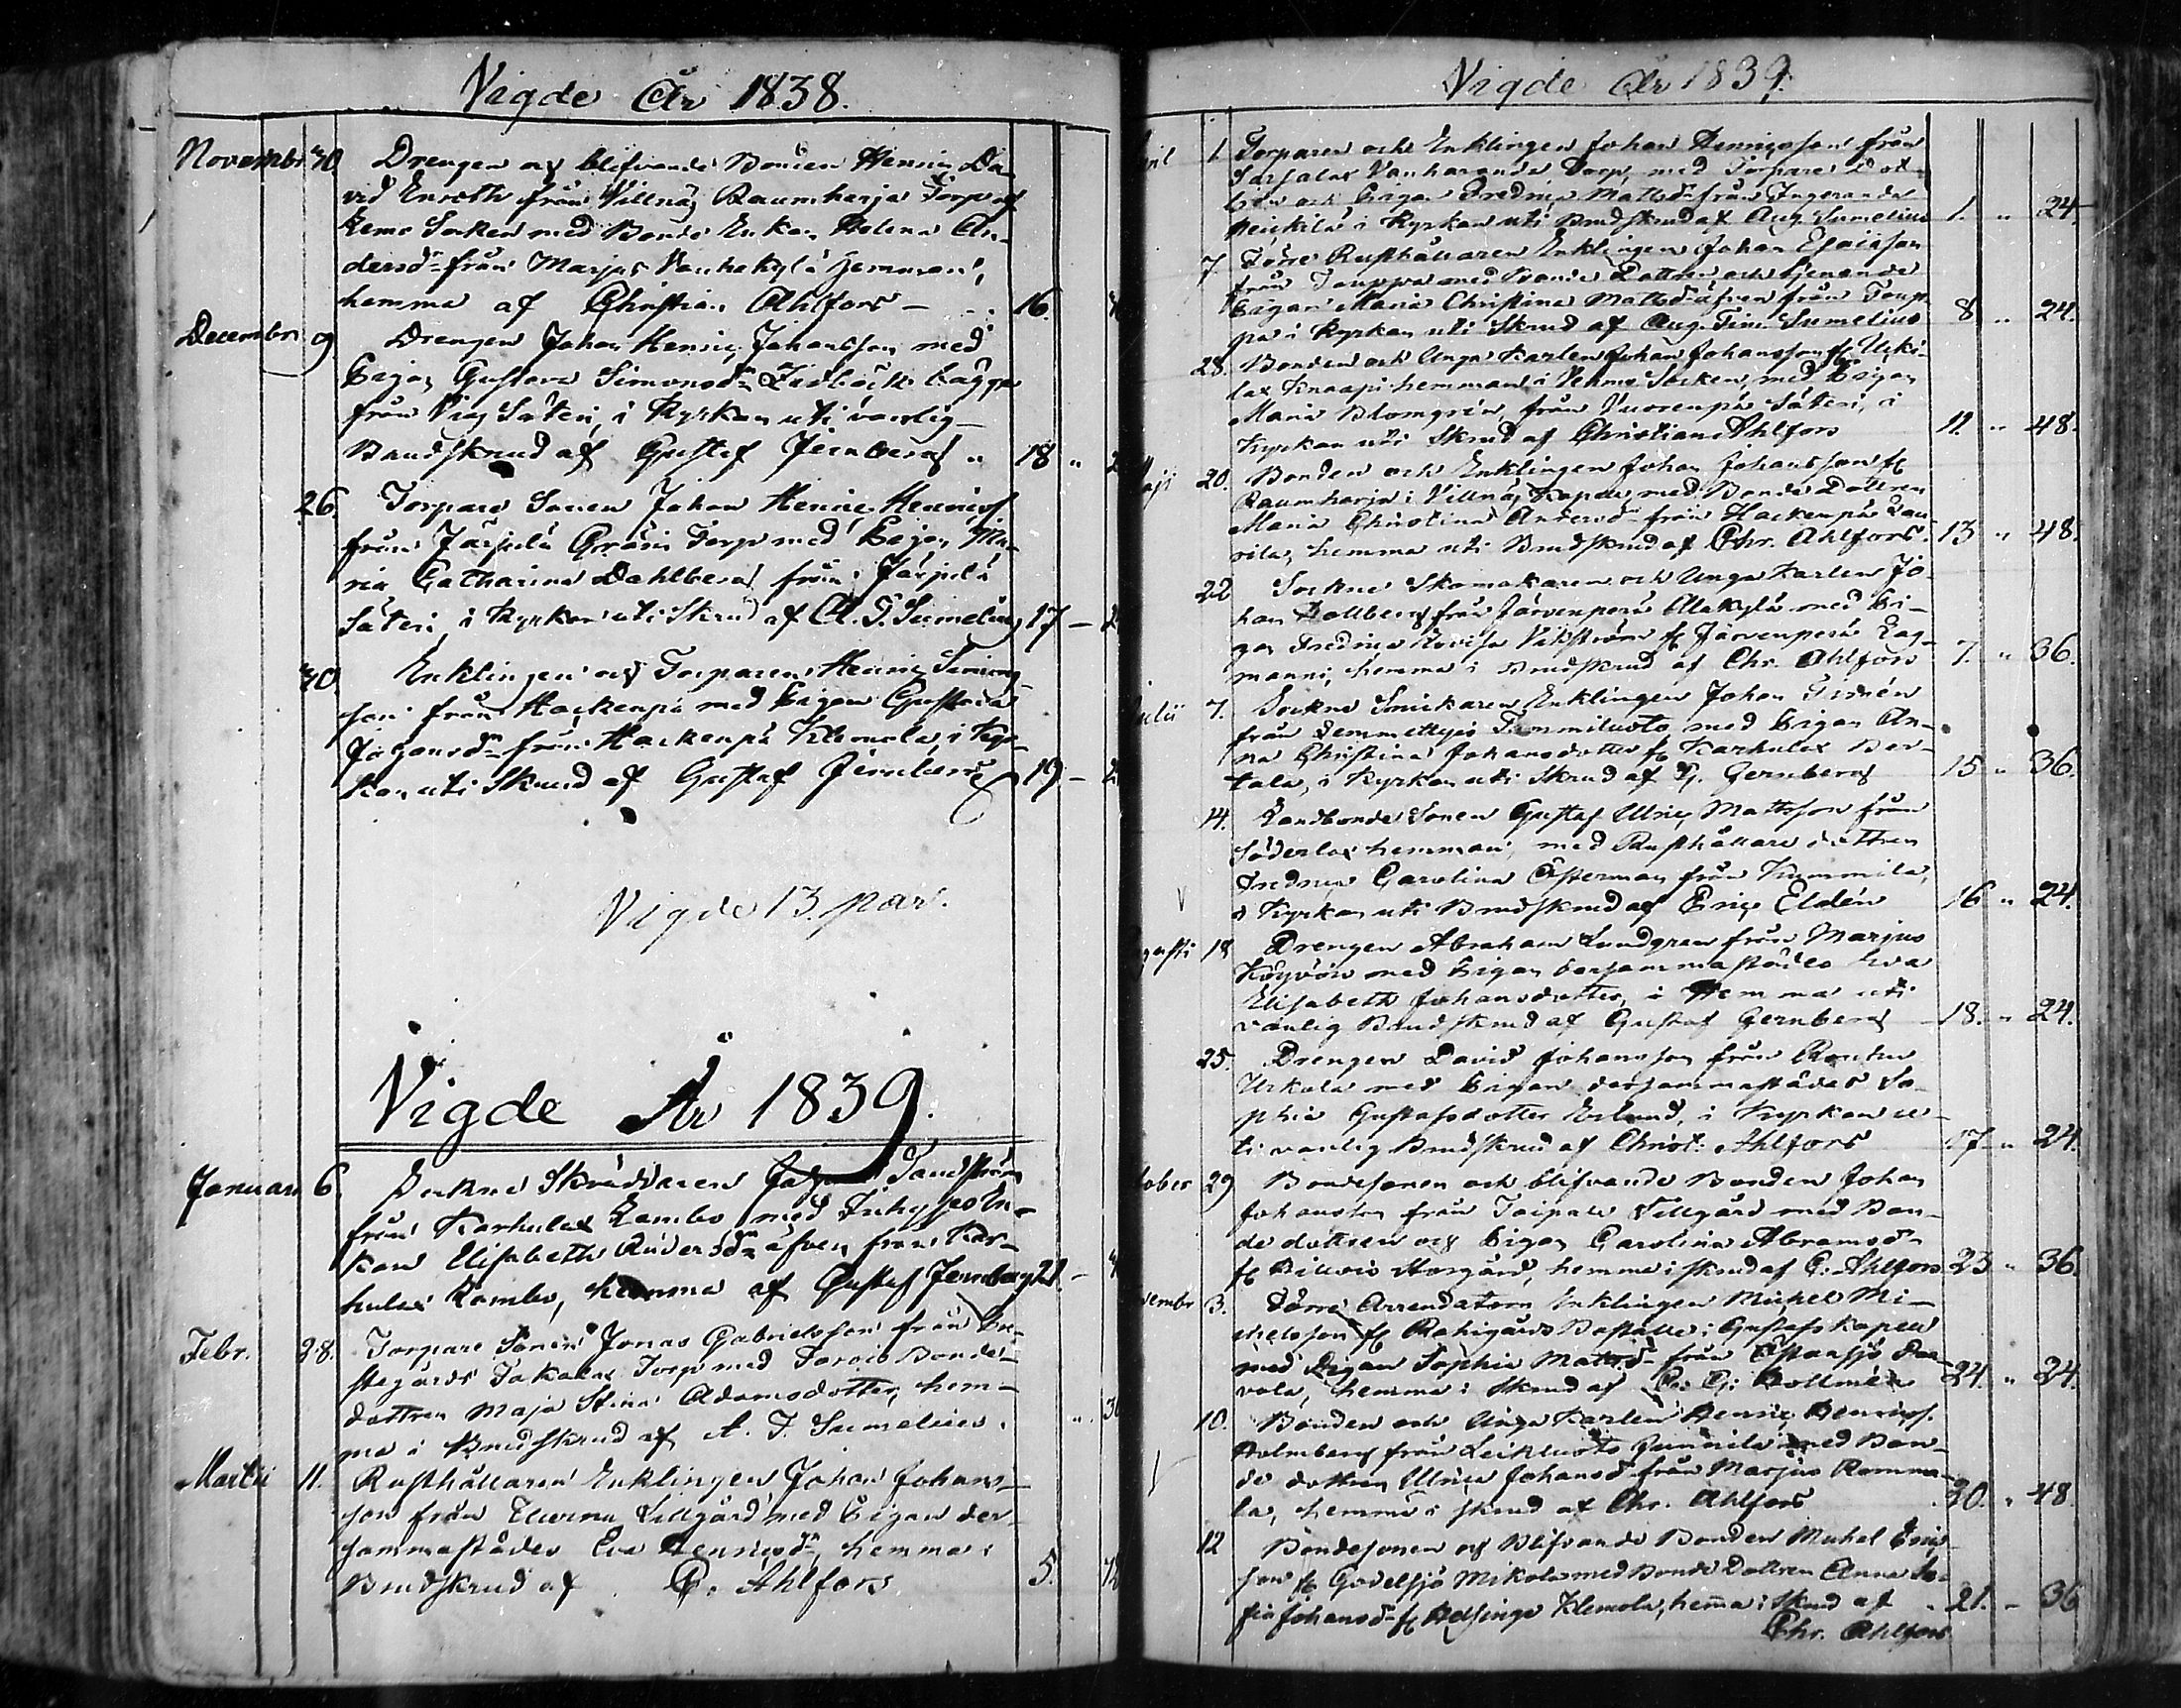 Vigde År 1838.
Novembr 30 Drengen och blifvande Bonden Henric Da-
vid Enroth från Villnäs Raumharja Torp af
Lemo Socken med Bonde Enkan Helena An-
dersdr från Marjus Vanhakylä hemman,
hemma af Christian Ahlfors — 16.
Decembri 9 Drengen Johan Henric Johansson med
Pigan Gustava Simonsdr bägge
från Säteri, i Kyrkan uti vanlig
Brudskrud af Gustaf Jernberg " 18 "
26. Torpare Sonen Johan Henric Henricss
från Järppilä Torp med Pigan Ma-
ria Catharina Dahlberg från Järppilä
Säteri i Kyrkan uti Skrud af A. T. Sumelius 17 —
30. Enklingen och Torparen Henric Simons-
son från Hackenpä med Pigan Gustava
Johansdr från Hackenpä Klemola, i Kyr-
kan uti Skrud af Gustaf Jernberg 19 —
Vigde 13 par.
Vigde År 1839.
Januari 6. Sockne Skräddaren Sandström
från Karhulax Lambo med Inhyses En-
kan Elisabeth Andersdr äfven från Kar-
hulax Lambo, hemma af Gustaf Jernberg 21. —
Febr. 28. Torpare Sonen Jonas Gabrielsson från
Torp med Bonde
dottren Maja Stina Adamsdotter, hem-
ma i Brudskrud af A. T. Sumelius. "
Martii 11. Rusthållaren Enklingen Johan Johans-
son från Lillgård med Pigan der-
sammastädes Eva Henricsdr, hemma i
Brudskrud af C. Ahlfors 5.
Vigde År 1839.
1 Torparen och Enklingen Johan Henricsson från
Sarsalax Vanharanda Torp, med Torpare Dot-
tren och Pigan Fredrica Mattsdr från Ingeranda
Heickilä i Kyrkan uti Brudskrud af Aug. Sumelius 1. " 24.
7 Förre Rusthållaren Enklingen Johan Esaiasson
från Tauppo med Bonde Dottren och tjenande
Pigan Maria Christina Mattsdr äfven från Taup-
po i Kyrkan uti Skrud af Aug. Tim. Sumelius 8 " 24.
28. Bonden och Unga Karlen Johan Johansson fr
Knaapi hemman i Vehmo Socken, med Pigan
Maria Blomgren från Vuorenpä Säteri, i
Kyrkan uti Skrud af Christian Ahlfors 11. " 48.
20. Bonden och Enklingen Johan Johansson fr
Raumharja i Villnäs Kapell med Bonde Dottren
Maria Christina Andersdr från Hackenpä Lau-
rila, hemma uti Brudskrud af Chr. Ahlfors. 13 " 48.
22 Sockne Skomakaren och Unga Karlen Jo-
han Dollberg från Järvenperä Alakylä med Pi-
gan Fredrica Lovisa Vikström fr Järvenperä Lag-
manni, hemma i Brudskrud af Chr. Ahlfors 7. " 36.
7. Sockne Snickaren Enklingen Johan
från Lemmettyis Tammiluoto, med Pigan An-
na Christina Johansdotter fr Karhulax Ber-
tala, i Kyrkan uti Skrud af G. Jernberg 15 " 36.
14. Landbonde Sonen Gustaf Ulric Mattsson från
Söderlax hemman, med Rusthållare dottren
Fredrica Carolina Österman från Kummila,
i Kyrkan uti Brudskrud af Eric Eldén 16 " 24.
18 Drengen Abraham Lundgren från Marjus
med Pigan dersammastädes Eva
Elisabeth Johansdotter, i Hemma uti
vanlig Brudskrud af Gustaf Jernberg 18. " 24.
25. Drengen David Johansson från
Uskola med Pigan dersammastädes So-
phia Gustafsdotter Enlund, i Kyrkan u-
ti vanlig Brudskrud af Christ. Ahlfors 17 " 24.
29 Bondesonen och blifvande Bonden Johan
Johansson från Taipale Lillgård med Bon-
de dottren och Pigan Carolina Abramsdr
fr Storgård, hemma i Skrud af C. Ahlfors 23 " 36.
3. Förre Arrendatorn Enklingen Michel Mi-
chelsson fr Rahigårds Boställe i Gustafs Kapell
med Pigan Sophia Mattsdr från
vola, hemma i Skrud af 24. " 24.
10. Bonden och Unga Karlen Henric Henricss.
Holmberg från Leikluoto Junnila med Bon-
de dottren Ulrica Johansdr från Marjus Romma-
la, hemma i Skrud af Chr. Ahlfors 20. " 48.
12 Bondesonen och Blifvande Bonden Michel Erics-
son fr Godelsjö Mikola med Bonde Dottren Anna So-
fia Johansdr fr Helsinge Klemola, hemma i Skrud af 21. — 36
Chr. Ahlfors